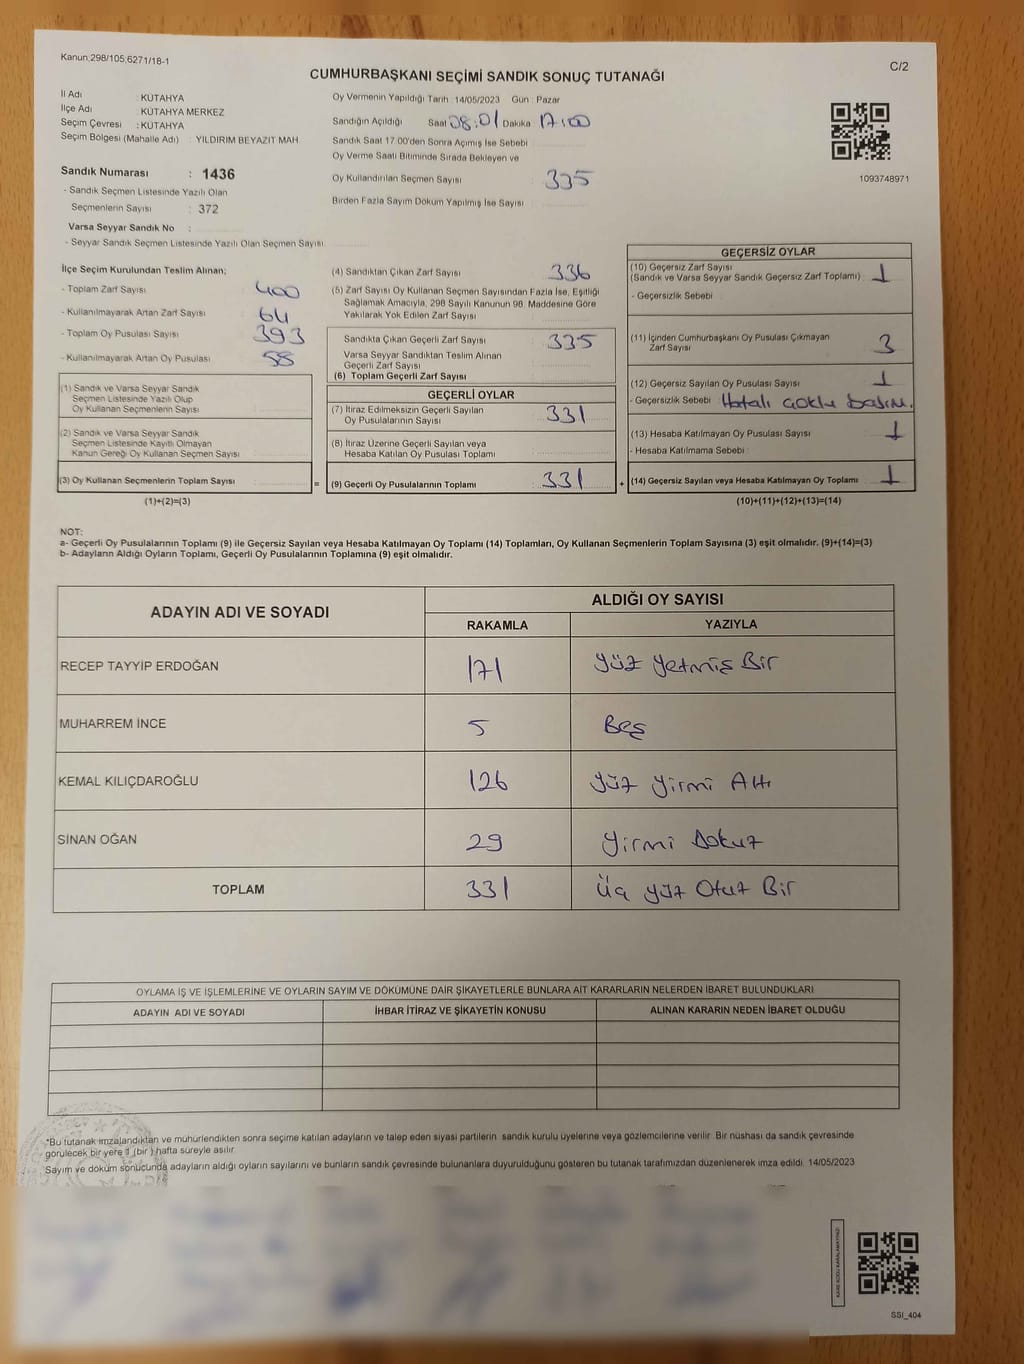 Kanun;298/105;6271/18-1
C/2
CUMHURBAŞKANI SEÇİMİ SANDIK SONUÇ TUTANAĞI
İl Adı : KÜTAHYA
İlçe Adı : KÜTAHYA MERKEZ
Seçim Çevresi : KÜTAHYA
Seçim Bölgesi (Mahalle Adı) : YILDIRIM BEYAZIT MAH
Sandık Numarası : 1436
- Sandık Seçmen Listesinde Yazılı Olan
Seçmenlerin Sayısı : 372
Varsa Seyyar Sandık No :
- Seyyar Sandık Seçmen Listesinde Yazılı Olan Seçmen Sayısı
Oy Vermenin Yapıldığı Tarih : 14/05/2023 Gün : Pazar
Sandığın Açıldığı Saat 08:01 Dakika 17:00
Sandık Saat 17.00'den Sonra Açılmış İse Sebebi
Oy Verme Saati Bitiminde Sırada Bekleyen ve
Oy Kullandırılan Seçmen Sayısı : 335
Birden Fazla Sayım Döküm Yapılmış İse Sayısı
1093748971
İlçe Seçim Kurulundan Teslim Alınan;
- Toplam Zarf Sayısı 400
- Kullanılmayarak Artan Zarf Sayısı 64
- Toplam Oy Pusulası Sayısı 393
- Kullanılmayarak Artan Oy Pusulası 58
(1) Sandık ve Varsa Seyyar Sandık
Seçmen Listesinde Yazılı Olup
Oy Kullanan Seçmenlerin Sayısı
(2) Sandık ve Varsa Seyyar Sandık
Seçmen Listesinde Kayıtlı Olmayan
Kanun Gereği Oy Kullanan Seçmen Sayısı
(3) Oy Kullanan Seçmenlerin Toplam Sayısı =
(1)+(2)=(3)
(4) Sandıktan Çıkan Zarf Sayısı 336
(5) Zarf Sayısı Oy Kullanan Seçmen Sayısından Fazla İse, Eşitliği
Sağlamak Amacıyla, 298 Sayılı Kanunun 98. Maddesine Göre
Yakılarak Yok Edilen Zarf Sayısı
Sandıkta Çıkan Geçerli Zarf Sayısı 335
Varsa Seyyar Sandıktan Teslim Alınan
Geçerli Zarf Sayısı
(6) Toplam Geçerli Zarf Sayısı
GEÇERLİ OYLAR
(7) İtiraz Edilmeksizin Geçerli Sayılan
Oy Pusulalarının Sayısı 331
(8) İtiraz Üzerine Geçerli Sayılan veya
Hesaba Katılan Oy Pusulası Toplamı
(9) Geçerli Oy Pusulalarının Toplamı 331 +
GEÇERSİZ OYLAR
(10) Geçersiz Zarf Sayısı
(Sandık ve Varsa Seyyar Sandık Geçersiz Zarf Toplamı) 1
- Geçersizlik Sebebi
(11) İçinden Cumhurbaşkanı Oy Pusulası Çıkmayan
Zarf Sayısı 3
(12) Geçersiz Sayılan Oy Pusulası Sayısı 1
- Geçersizlik Sebebi Hatalı
(13) Hesaba Katılmayan Oy Pusulası Sayısı 1
- Hesaba Katılmama Sebebi
(14) Geçersiz Sayılan veya Hesaba Katılmayan Oy Toplamı 1
(10)+(11)+(12)+(13)=(14)
NOT:
a- Geçerli Oy Pusulalarının Toplamı (9) ile Geçersiz Sayılan veya Hesaba Katılmayan Oy Toplamı (14) Toplamları, Oy Kullanan Seçmenlerin Toplam Sayısına (3) eşit olmalıdır. (9)+(14)=(3)
b- Adayların Aldığı Oyların Toplamı, Geçerli Oy Pusulalarının Toplamına (9) eşit olmalıdır.
ADAYIN ADI VE SOYADI
ALDIĞI OY SAYISI
RAKAMLA YAZIYLA
RECEP TAYYİP ERDOĞAN 171 Yüz Yetmiş Bir
MUHARREM İNCE 5 Beş
KEMAL KILIÇDAROĞLU 126 Yüz Yirmi Altı
SİNAN OĞAN 29 Yirmi Dokuz
TOPLAM 331 Üç Yüz Otuz Bir
OYLAMA İŞ VE İŞLEMLERİNE VE OYLARIN SAYIM VE DÖKÜMÜNE DAİR ŞİKAYETLERLE BUNLARA AİT KARARLARIN NELERDEN İBARET BULUNDUKLARI
ADAYIN ADI VE SOYADI İHBAR İTİRAZ VE ŞİKAYETİN KONUSU ALINAN KARARIN NEDEN İBARET OLDUĞU
*Bu tutanak imzalandıktan ve mühürlendikten sonra seçime katılan adayların ve talep eden siyasi partilerin sandık kurulu üyelerine veya gözlemcilerine verilir. Bir nüshası da sandık çevresinde
görülecek bir yere 1 (bir) hafta süreyle asılır.
Sayım ve döküm sonucunda adayların aldığı oyların sayılarını ve bunların sandık çevresinde bulunanlara duyurulduğunu gösteren bu tutanak tarafımızdan düzenlenerek imza edildi. 14/05/2023
KARE KODU KARALAMAYINIZ!
SSI_404